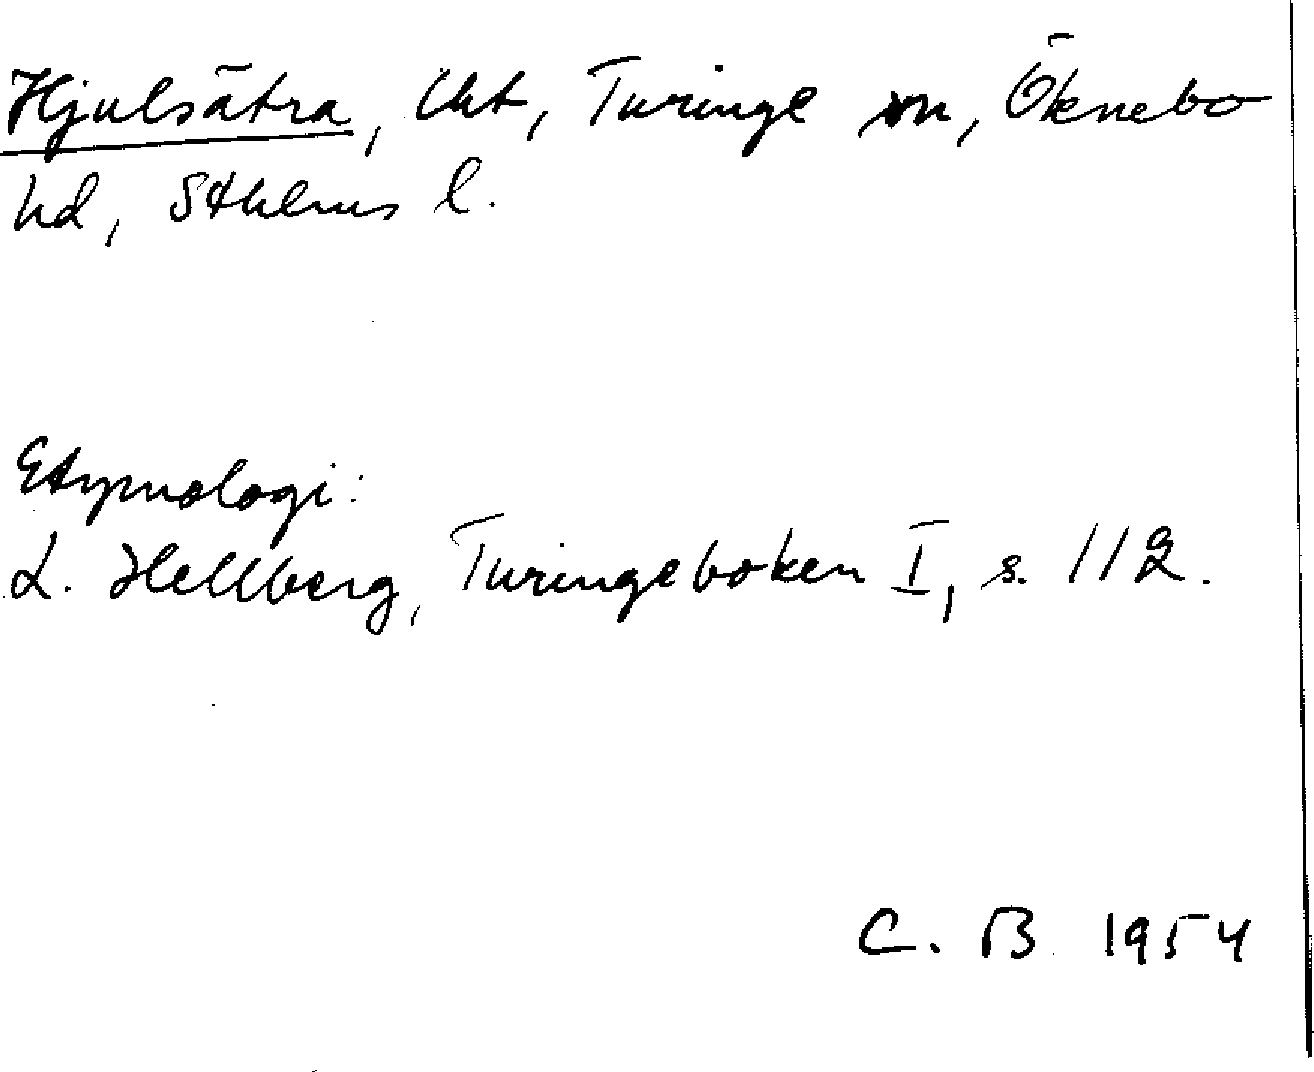 Hjulsätra, Ukt, Turinge sn, Öknebo
hd, Sthlms l.
Etymologi:
L. Hellberg, Turingeboken I, s. 112.
C. B. 1954